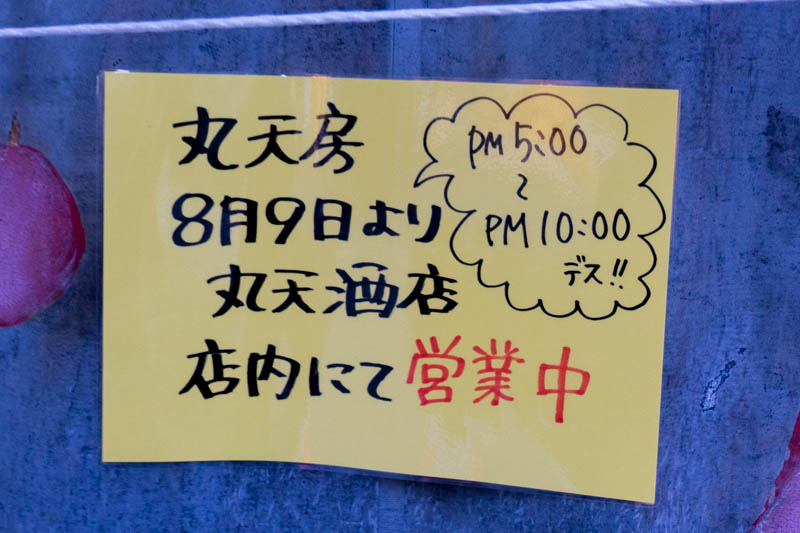 丸天房
8月9日より
丸天酒店
店内にて営業中
PM5:00
〜
PM10:00
デス!!